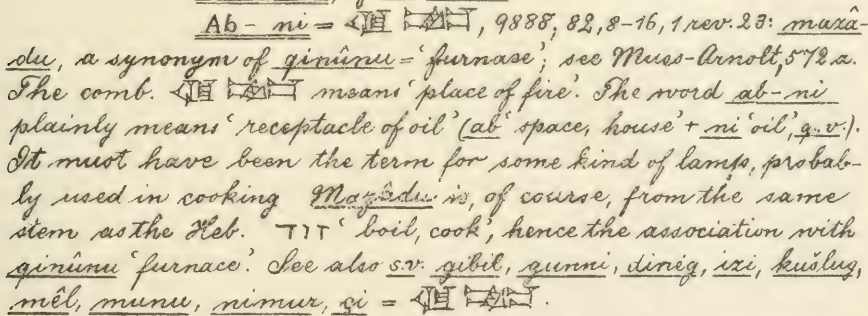 Ab-ni = 𒆠𒉈, 9888; 82, 8-16, 1 rev. 23: mazâ-
du, a synonym of qinûnu = ‘furnase’; see Muss-Arnolt, 572 a.
The comb. means ‘place of fire’. The word ab-ni
plainly means ‘receptacle of oil’ (ab ‘space, house’ + ni ‘oil’, q.v.).
It must have been the term for some kind of lamp, probab-
ly used in cooking Mazâdu is, of course, from the same
stem as the Heb. דוד ‘boil, cook’, hence the association with
qinûnu ‘furnace’. See also s.v. gibil, gunni, dinég, izi, kušlug,
mêl, munu, nimur, çi =